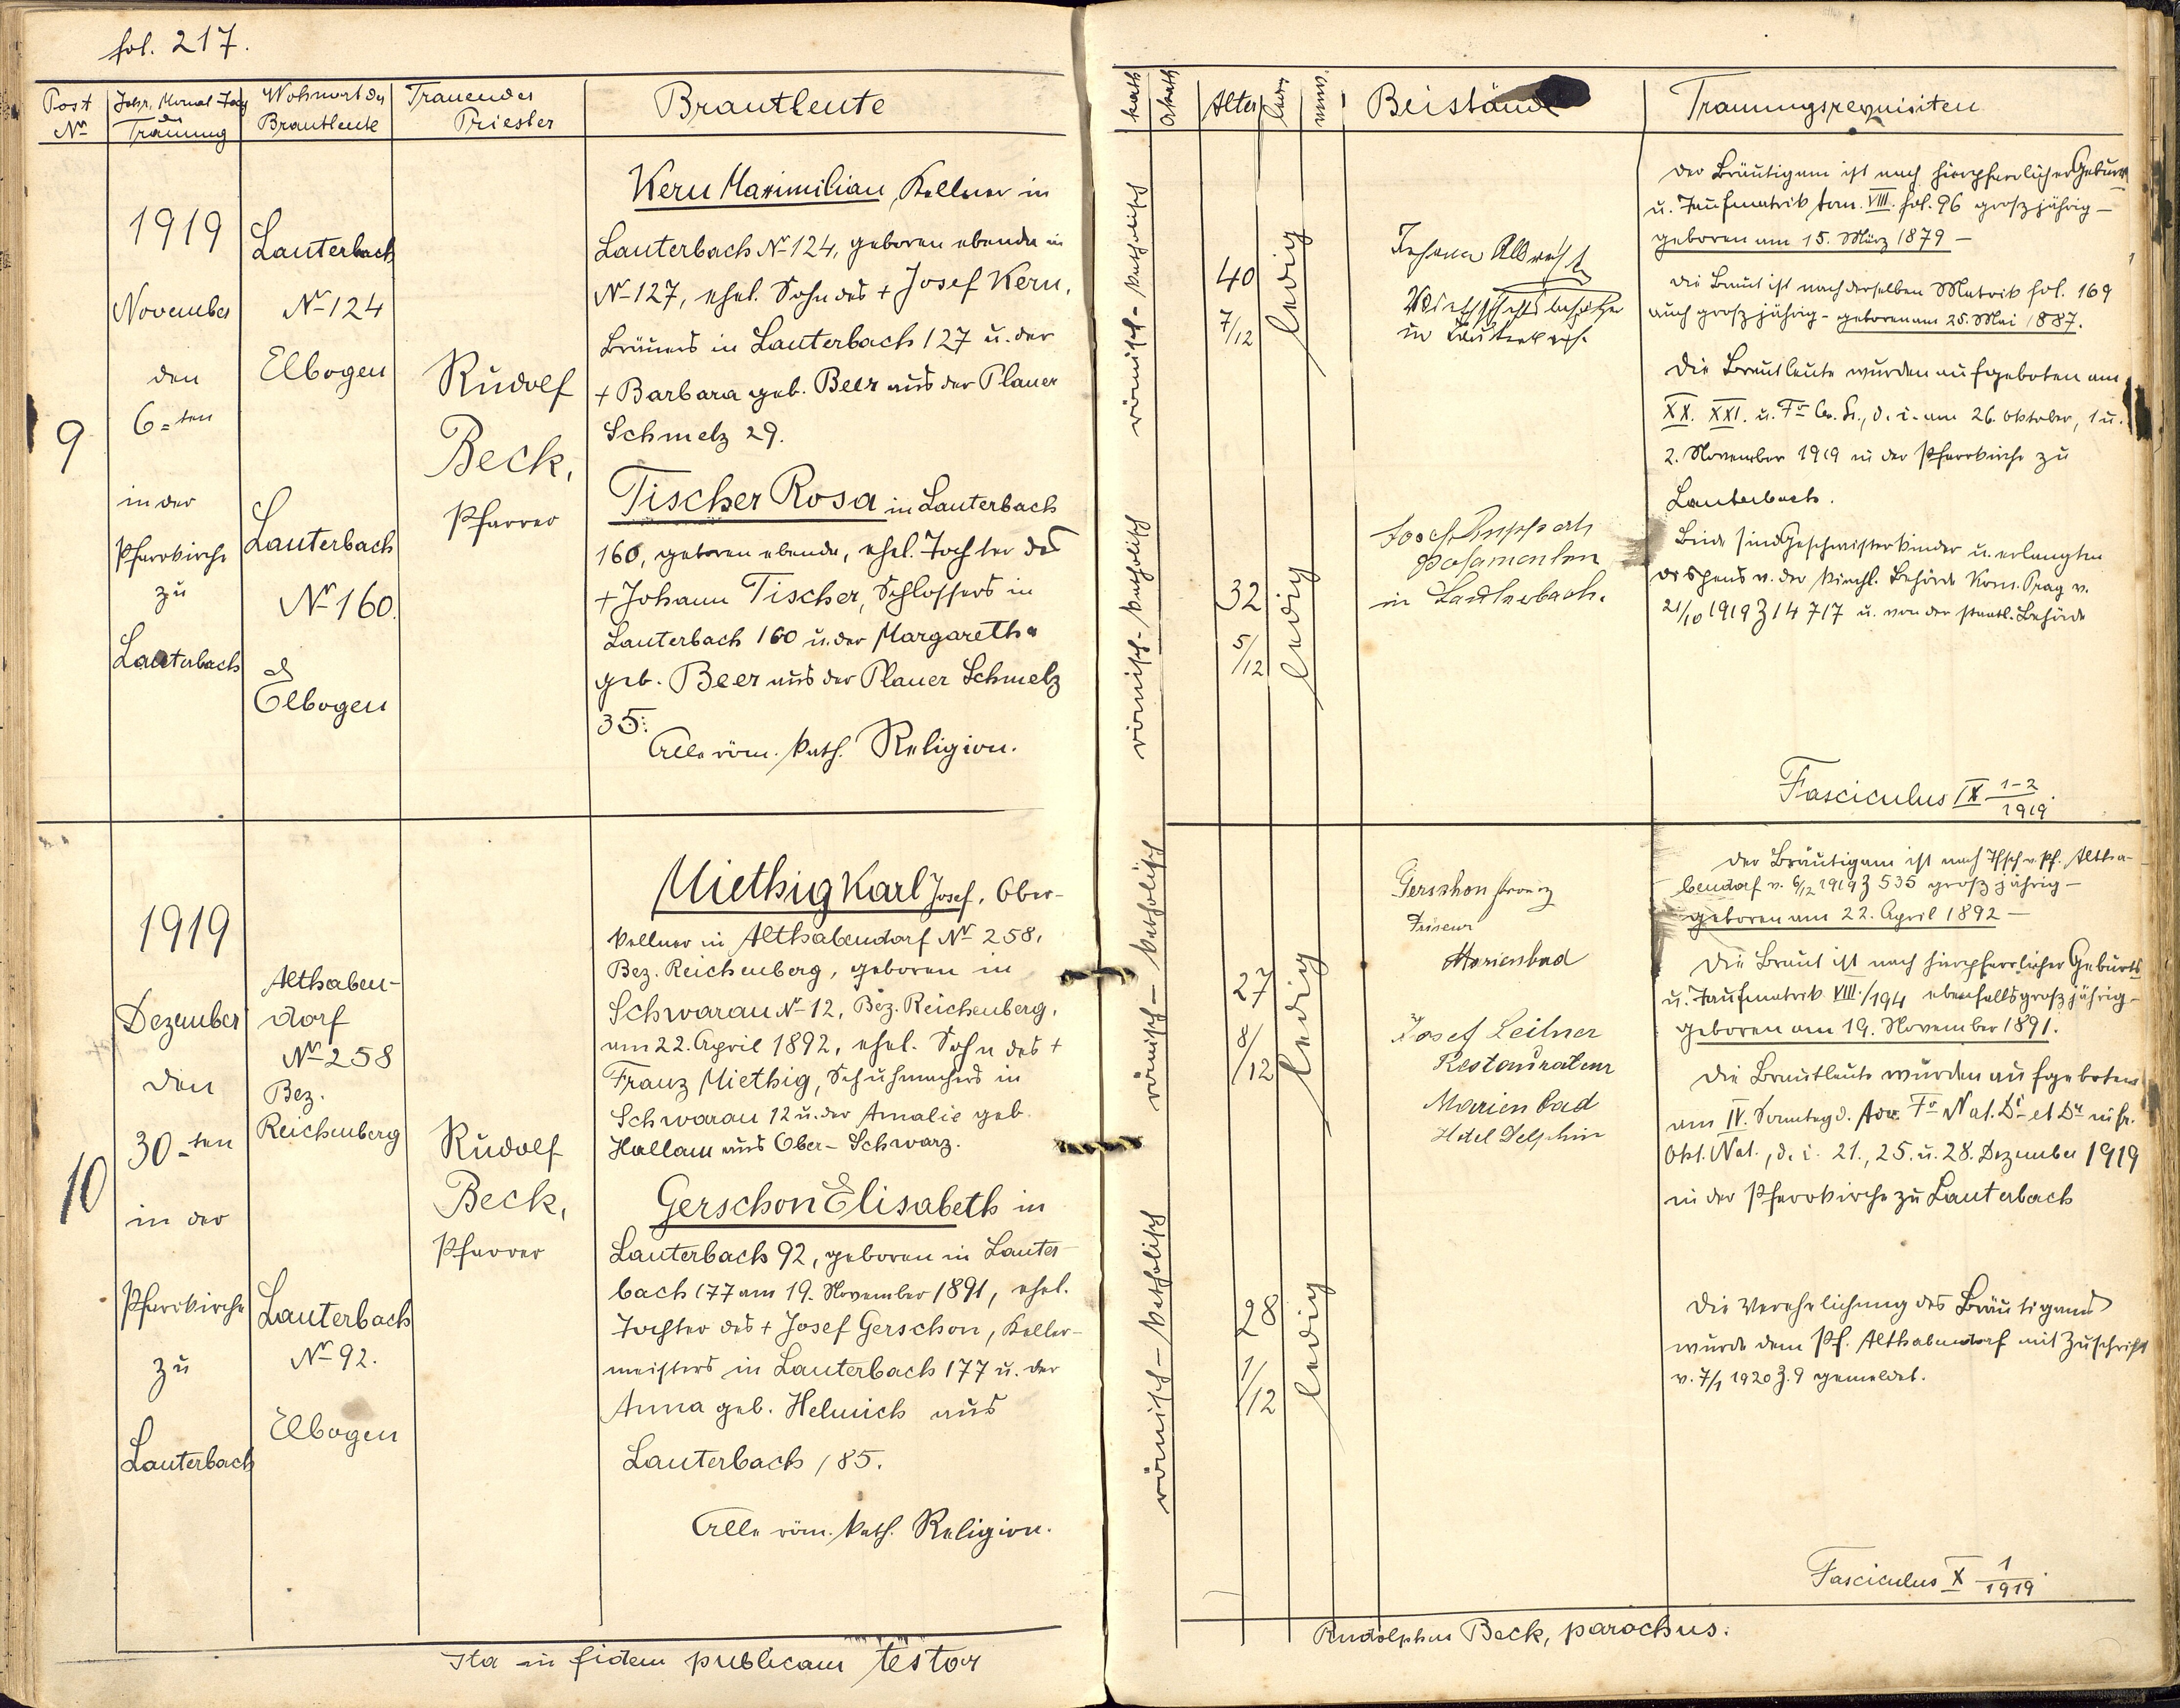 fol. 217.
Post
Nro
Jahr, Monat Tag
der
Trauung
Wohnort der
Brautleute
Trauender
Priester
Brautleute
9
1919
November
den
6-ten
in der
Pfarrkirche
zu
Lauterbach
Lauterbach
No 124
Elbogen
Lauterbach
No 160.
Elbogen
Rudolf
Beck,
Pfarrer
Kern Maximilian, Kellner in
Lauterbach No 124, geboren ebenda in
No 127, ehel. Sohn des + Josef Kern,
Bräuers in Lauterbach 127 u. der
+ Barbara geb. Beer aus der Planer
Schmelz 29.
Tischer Rosa in Lauterbach
160, geboren ebenda, ehel. Tochter des
+ Johann Tischer, Schlossers in
Lauterbach 160 u. der Margaretha
geb. Beer aus der Planer Schmelz
35.
Alle röm. kath. Religion.
10
1919
Dezember
den
30-ten
in der
Pfarrkirche
zu
Lauterbach
Althaben-
dorf
No 258
Bez.
Reichenberg
Lauterbach
No 92.
Elbogen
Rudolf
Beck,
Pfarrer
Miethig Karl Josef, Ober-
kellner in Althabendorf No 258,
Bez. Reichenberg, geboren in
Schwarau No 12, Bez. Reichenberg,
am 22. April 1892, ehel. Sohn des +
Franz Miethig, Schuhmachers in
Schwarau 12 u. der Amalie geb.
Hallam aus Ober-Schwarz.
Gerschon Elisabeth in
Lauterbach 92, geboren in Lauter-
bach 177 am 19. November 1891, ehel.
Tochter des + Josef Gerschon, Keller-
meisters in Lauterbach 177 u. der
Anna geb. Helmich aus
Lauterbach 185.
Alle röm. kath. Religion.
Ita in fidem publicam testor
kath
Akath
Alter
Beistände
Trauungsrequisiten
römisch-katholisch
40
7/12
ledig
Johann Albrecht
Wirtschaftsbesitzer
in Lauterbach.
römisch-katholisch
32
5/12
ledig
Josef Ruppert
Posamentier
in Lauterbach.
Der Bräutigam ist nach hierpfarrlicher Geburts
u. Taufmatrik tom. VIII. fol. 96 großjährig -
geboren am 15. März 1879 -
Die Braut ist nach derselben Matrik fol. 169
auch großjährig - geboren am 25. Mai 1887.
Die Brautleute wurden aufgeboten am
XX. XXI. u. d. i. am 26. Oktober, 1 u.
2. November 1919 in der Pfarrkirche zu
Lauterbach.
Beide sind Geschwisterkinder u. erlangten
Dispens v. der kirchl. Behörde Kons. Prag v.
21/10 1919 Z 14717 u. von der staatl. Behörde
Fasciculus IX 1-2/1919.
römisch-katholisch
27
8/12
ledig
Gerschon Franz
Friseur
Marienbad
Josef Leitner
Restaurateur
Marienbad
Hotel Delphin
römisch-katholisch
28
1/12
ledig
Der Bräutigam ist nach Tfsch. v. Pf. Altha-
bendorf v. 6/12 1919 Z 535 großjährig -
geboren am 22. April 1892 -
Die Braut ist nach hierpfarrlicher Geburts
u. Taufmatrik VIII/194 ebenfalls großjährig -
geboren am 19. November 1891.
Die Brautleute wurden aufgeboten
am IV. Sonntag d. Adv. Fo Nat. Di et Da
Okt. Nat., d. i. 21., 25. u. 28. Dezember 1919
in der Pfarrkirche zu Lauterbach
Die Verehelichung des Bräutigams
wurde dem Pf. Althabendorf mit Zuschrift
v. 7/1 1920 Z. 9 gemeldet.
Fasciculus X 1/1919.
Rudolphus Beck, parochus.